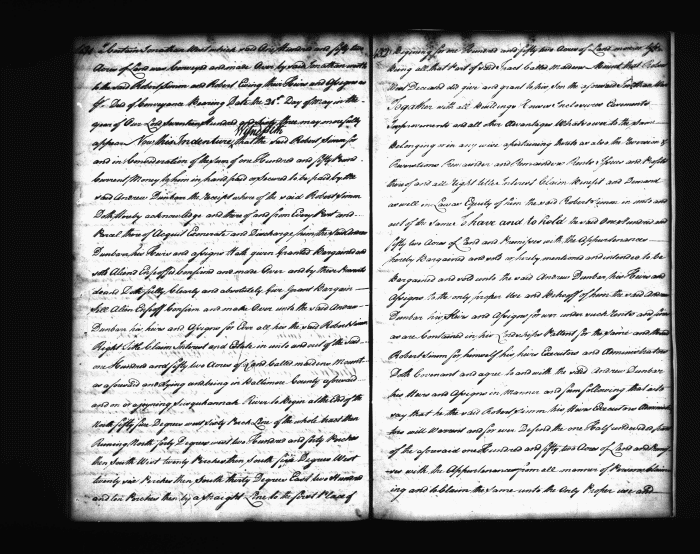 a Certain Jonathan West which said One Hundred and fifty two
Acres of Land was Conveyed and made Over by said Jonathan
to the said Robert Simm and Robert Ewing their Heirs and Assigns as
Deed of Conveyance Bearing Date the 31st Day of May in the
year of Our Lord Seventeen Hundred and may more fully
Witnesseth
appear Now this Indenture, that the said Robert Simm for
and in Consideration of the Sum of one Hundred and fifty
Current Money to him in hand paid or Secured to be paid by the
said Andrew Dunbar the Receipt whereof the said Robert Simm
Doth Hereby acknowledge and thereof and from Every Part and
Parcel thereof Acquit Exonerate and Discharge him the said Andrew
Dunbar his Heirs and assigns Hath given granted Bargained and
sold Aliend Enfeoffed Confirmd and made Over and by these Presents
doeth fully Clearly and absolutely Give Grant Bargain
Sell Alien Enfeoff Confirm and make Over unto the said Andrew
Dunbar his heirs and Assigns for Ever all his the said Robert Simm
Right Title Claim Interest and Estate in unto and out of the said
one Hundred and fifty two Acres of Land Called
as aforesaid and lying and being in Baltimore County aforesaid
and on or ajoyning Susquehannah River to begin at the End of the
North fifty five Degrees west Sixty Perch Line of the whole tract then
Running North forty Degrees west two Hundred and Sixty Perches
then South West twenty Perches then South Degrees West
twenty six Perches then South thirty Degrees East two Hundred
and ten Perches then by a Straight Line to the first Place of
Beginning for one Hundred and fifty two Acres of Land more or less
being all that Part of said tract Called that
West Dec and did give and grant to his Son the aforesaid Jonathan West
Together with all Buildings Houses Inclosures
Improvements and all other Advantages Whatsoever to the Same
Belonging or in any wise appertaining thereto as also the Reversion &
Reversions Remainder and Remainders Rents Issues and Profits
thereof and all Right title Interest Claim Benefit and Demand
as well in Law as Equity of him the said Robert Simm in unto and
out of the Same To have and to hold the said One Hundred and
fifty two Acres of Land and Premises with the Appurtenances
hereby Bargained and sold or hereby mentioned and intended to be
Bargained and sold unto the said Andrew Dunbar his Heirs and
Assigns to the only proper Use and Behoof of him the said Andrew
Dunbar his Heirs and Assigns for ever under such Rents and
as are Contained in his Lordships Pattent for the Same and
Robert Simm for himself his heirs Executors and Administrators
Doth Covenant and agree to and with the said Andrew Dunbar
his Heirs and Assigns in Manner and form following that is to
say that he the said Robert Simm his Heirs Executors
will Warrant and for ever Defend the one Half
of the aforesaid one Hundred and fifty two Acres of Land and
with the Appurtenances from all manner of Persons Claim
ing and to Claim the Same unto the Only Proper use and